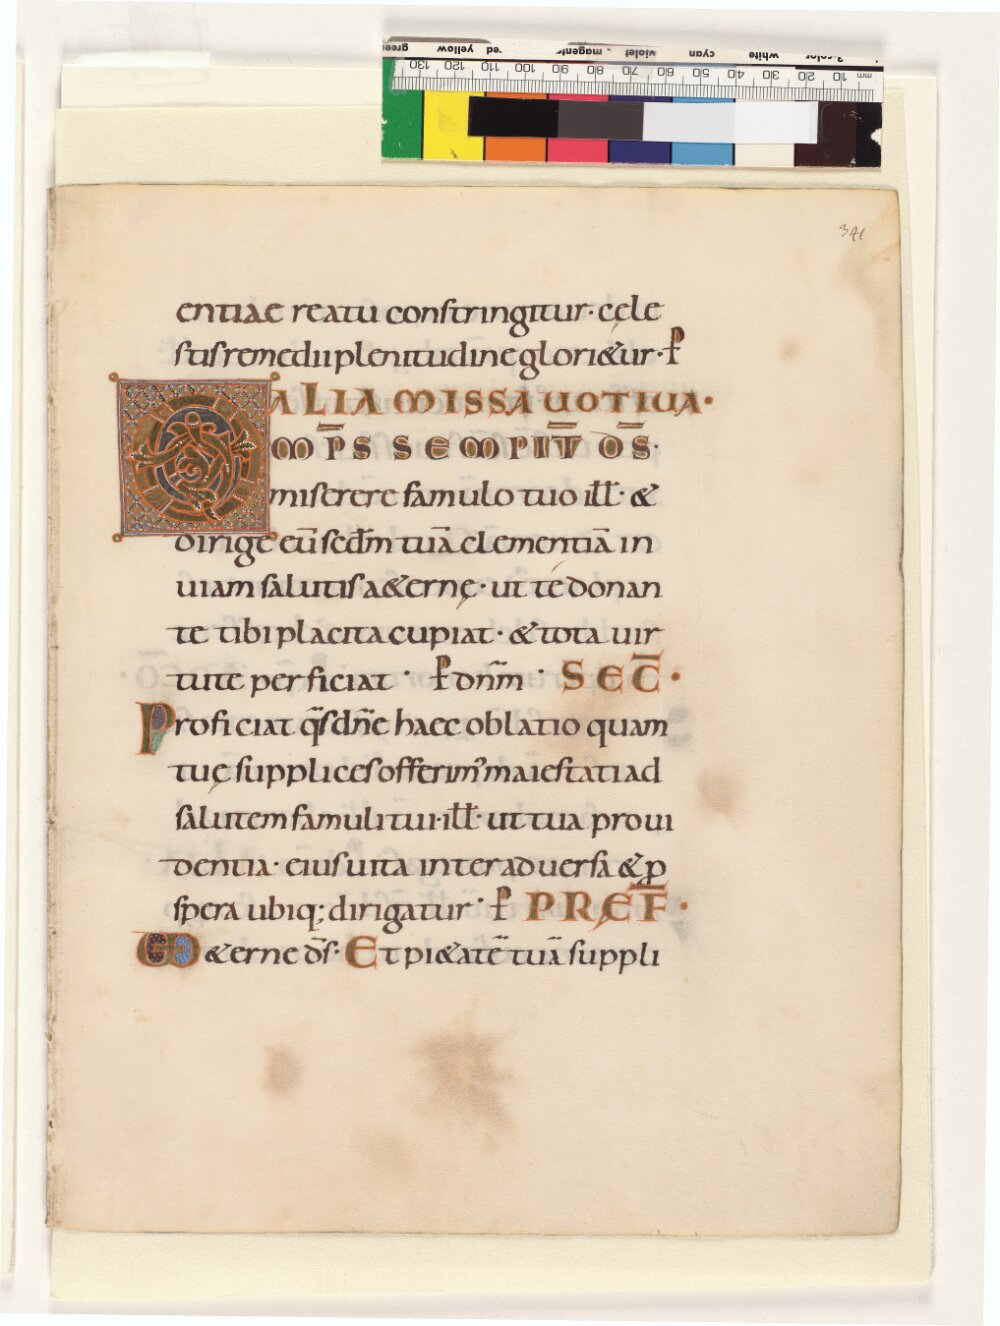 green yellow red magenta violet cyan white 3-color
130 120 110 100 90 80 70 60 50 40 30 20 10 mm
341
entiae reatu constringitur· cęle
stis remedii plenitudine glori&ur· ꝑ
ALIA MISSA UOTIUA·
OMP̄S SEMPIT̄ D̄S·
miserere famulo tuo ill̄· &
dirige eū secd̄m tuā clementiā in
uiam salutis a&ernę· ut te donan
te tibi placita cupiat· & tota uir
tute perficiat· ꝑ dn̄m· SEC̄·
Proficiat qs̄ dn̄e haec oblatio quam
tuę supplices offerim' maiestati ad
salutem famuli tui· ill̄· ut tua proui
dentia· eius uita inter aduersa & ꝓ
spera ubiq; dirigatur· ꝑ PRĘF̄·
O &erne d̄s· Et pi&atē tuā suppli